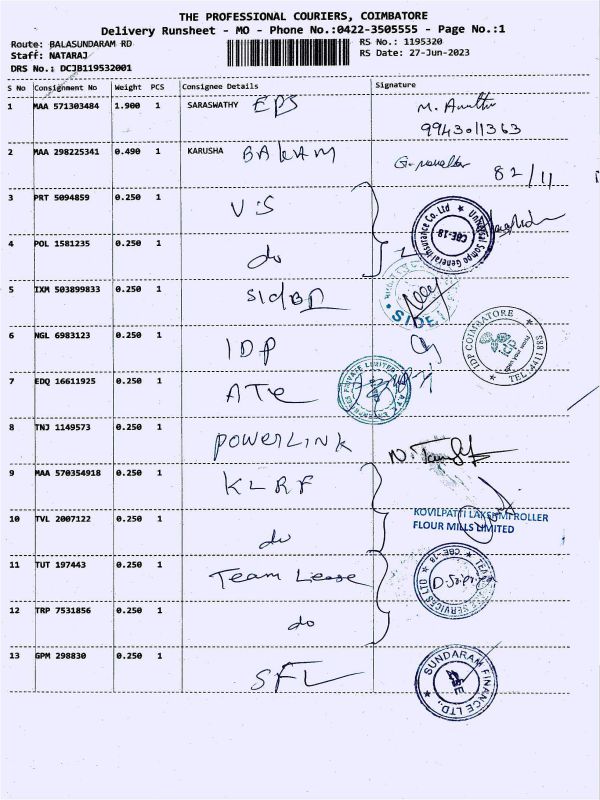 THE PROFESSIONAL COURIERS, COIMBATORE
Delivery Runsheet - MO - Phone No.:0422-3505555 - Page No.:1
Route: BALASUNDARAM RD
RS No.: 1195320
Staff: NATARAJ
RS Date: 27-Jun-2023
DRS No.: DCJB119532001
S No Consignment No Weight PCS Consignee Details Signature
1 MAA 571303484 1.900 1 SARASWATHY EPS
9943011363
2 MAA 298225341 0.490 1 KARUSHA 82/11
3 PRT 5094859 0.250 1 V.S
Universal Sompo General Insurance Co. Ltd ★ CBE-18
4 POL 1581235 0.250 1 do
5 IXM 503899833 0.250 1 SIDBI
6 NGL 6983123 0.250 1 IDP
IDP COIMBATORE ★ TEL:4411885 ★ idp
7 EDQ 16611925 0.250 1 ATE
8 TNJ 1149573 0.250 1 POWERLINK
9 MAA 570354918 0.250 1 KLRF
KOVILPATTI LAKSHMI ROLLER
FLOUR MILLS LIMITED
10 TVL 2007122 0.250 1 do
11 TUT 197443 0.250 1 Team Liease
12 TRP 7531856 0.250 1 do
13 GPM 298830 0.250 1 SFL
SUNDARAM FINANCE LTD., ★ CBE